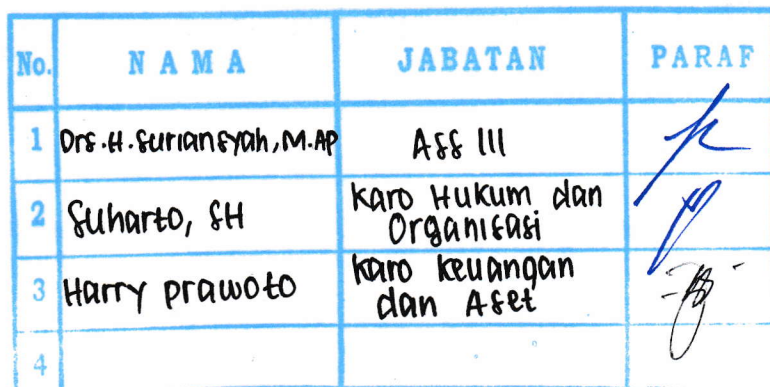 No. N A M A JABATAN PARAF
1 Drs.H.Suriansyah, M.AP Ass III
2 Suharto, SH Karo Hukum dan Organisasi
3 Harry prawoto Karo keuangan dan Aset
4